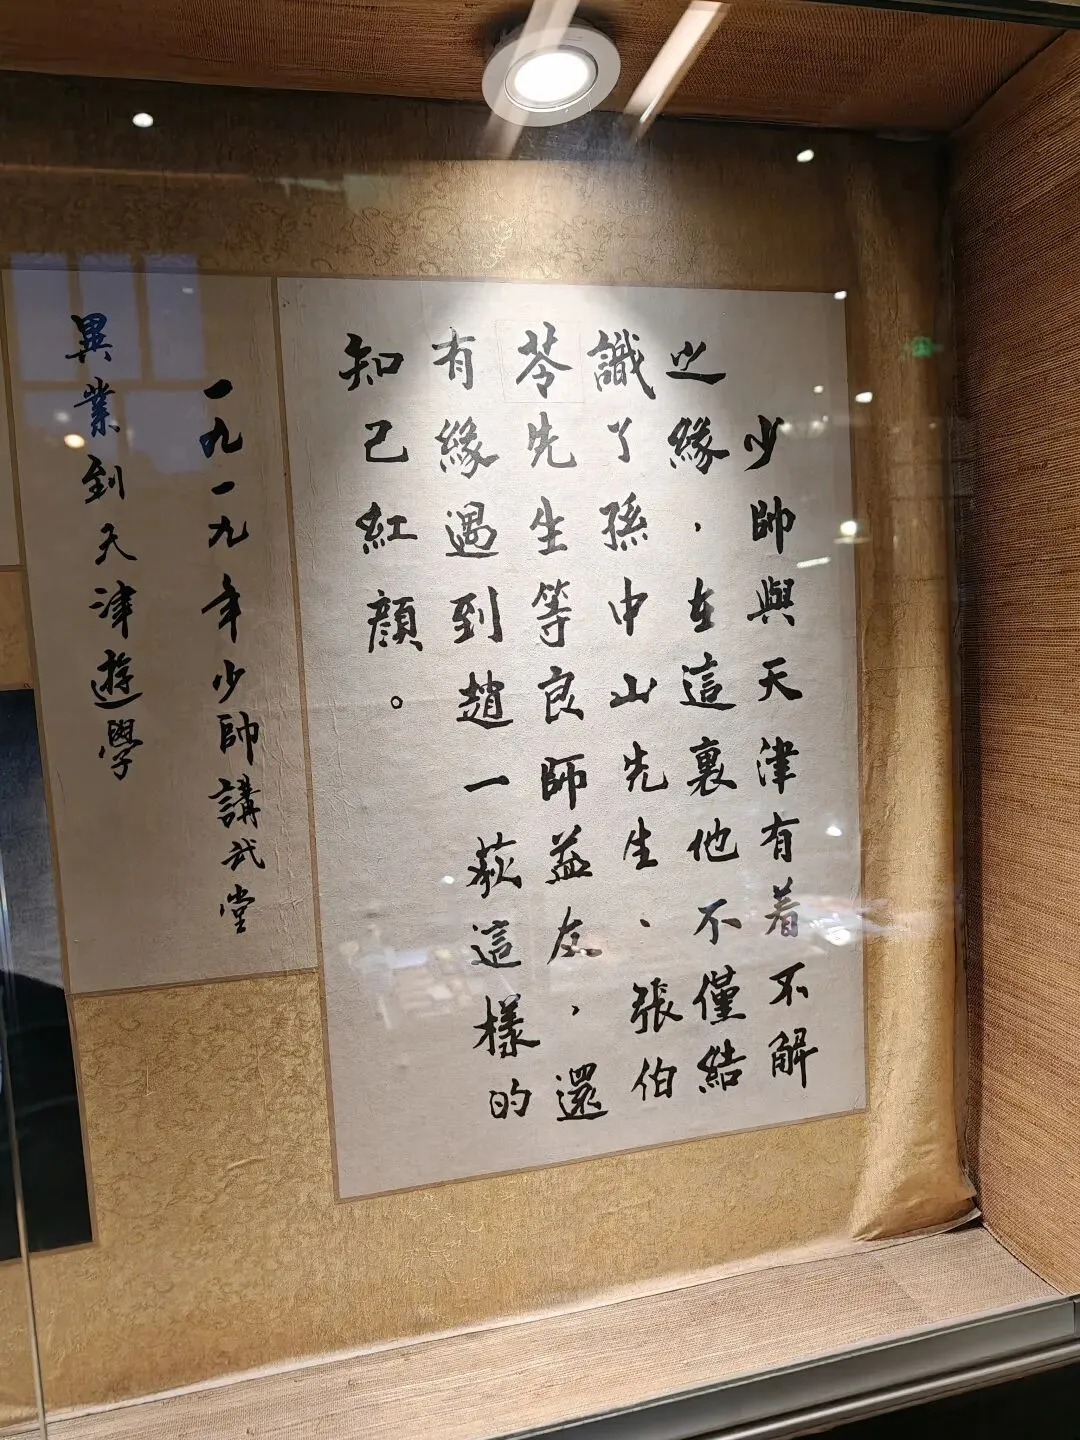 少帥與天津有着不解
之緣，在這裏他不僅結
識了孫中山先生、張伯
苓先生等良師益友，還
有緣遇到趙一荻這樣的
知己紅顔。
一九一九年少帥講武堂
異業到天津遊學